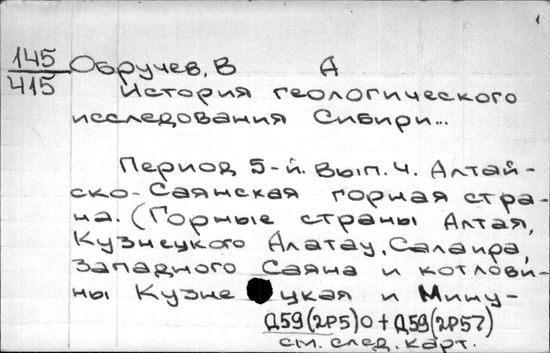 1
145
415
Обручев, В А
История геологического
исследования Сибири...
Период 5-й. Вып. 4. Алтай-
ско-Саянская горная стра-
на. (Горные страны Алтая,
Кузнецкого Алатау, Салаира,
Западного Саяна и котлови-
ны Кузне цкая и Мину-
Д59(2Р5)0 + Д59(2Р57)
см. след. карт.